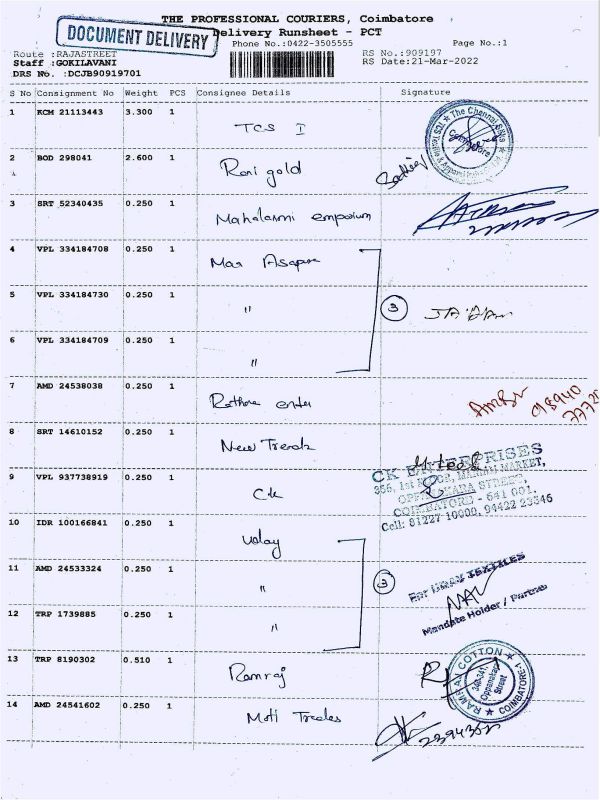 THE PROFESSIONAL COURIERS, Coimbatore
DOCUMENT DELIVERY
Delivery Runsheet - PCT
Phone No.:0422-3505555
Page No.:1
Route :RAJASTREET
RS No.:909197
Staff :GOKILAVANI
RS Date:21-Mar-2022
DRS No. :DCJB90919701
S No Consignment No Weight PCS Consignee Details Signature
1 KCM 21113443 3.300 1 TCS I
2 BOD 298041 2.600 1 Rani gold
3 SRT 52340435 0.250 1 Mahalaxmi emporium
4 VPL 334184708 0.250 1
5 VPL 334184730 0.250 1 " 3
6 VPL 334184709 0.250 1 "
7 AMD 24538038 0.250 1 98940
8 SRT 14610152 0.250 1 New Trends
CK ENTERPRISES
9 VPL 937738919 0.250 1 Ck
COIMBATORE - 641 001.
Cell: 81227 10000, 94422 23346
10 IDR 100166841 0.250 1 uday
11 AMD 24533324 0.250 1 " 3
For UDAY TEXTILES
Mandate Holder / Partner
12 TRP 1739885 0.250 1 "
13 TRP 8190302 0.510 1 Ramraj
RAMRAJ COTTON
Oppanakara
Street
COIMBATORE-1
14 AMD 24541602 0.250 1 Moti Trades